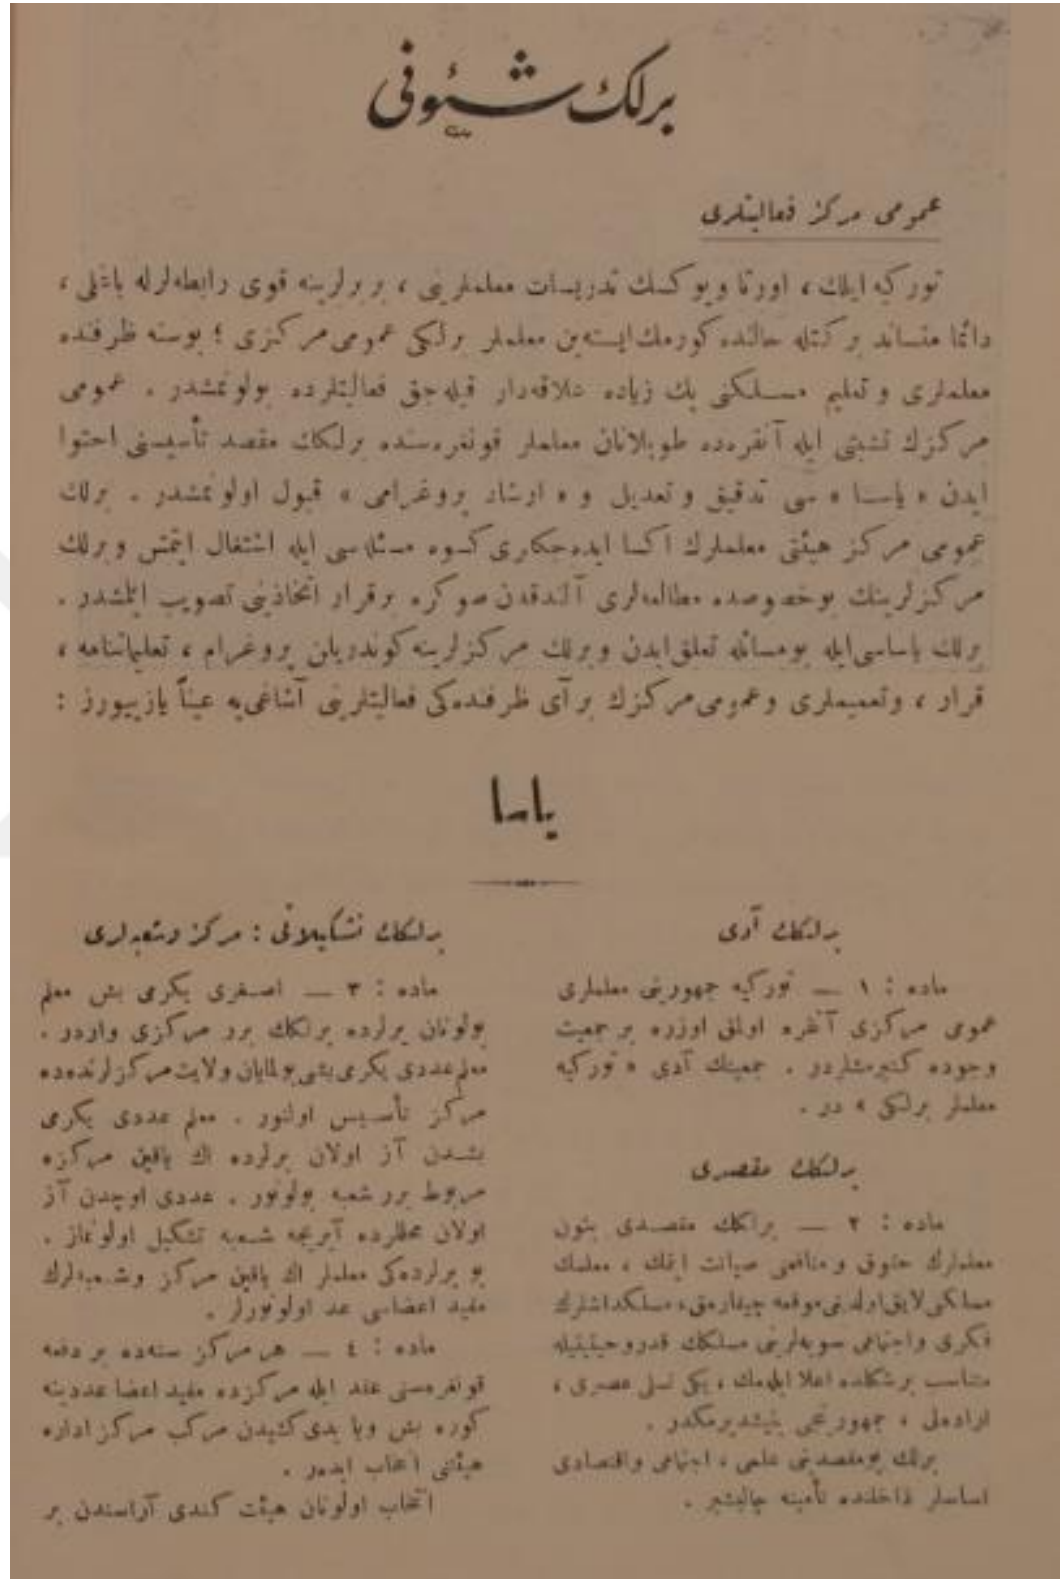 برلك شئونى
عمومى مركز فعاليتلرى
توركيه ايلك ، اورتا ويوكسك تدريسات معلملرينى ، بربرلرينه قوى رابطه‌لرله باغلى ،
دائما متساند بر كتله حالنده كورمك ايسته‌ين معلملر برلكى عمومى مركزى ؛ بوسنه ظرفنده
معلملرى و تعليم مسلكنى پك زياده علاقه‌دار قيله‌جق فعاليتلرده بولونمشدر . عمومى
مركزك تشبثى ايله آنقره‌ده طوپلانان معلملر قونغره‌سنده برلكك مقصد تأسيسنى احتوا
ايدن « ياسا » سى تدقيق و تعديل و « ارشاد پروغرامى » قبول اولونمشدر . برلك
عمومى مركز هيئتى معلملرك اكسا ايده‌جكلرى كسوه مسئله‌سى ايله اشتغال ايتمش و برلك
مركزلرينك بوخصوصده مطالعه‌لرى آلندقدن صوكره برقرار اتخاذينى تصويب ايتمشدر .
برلك ياساسى ايله بومسائله تعلق ايدن وبرلك مركزلرينه كوندريلن پروغرام ، تعليماتنامه ،
قرار ، وتعميملرى وعمومى مركزك بر آى ظرفنده‌كى فعاليتلرينى آشاغى‌يه عيناً يازييورز :
ياسا
برلكك آدى
ماده : ١ — توركيه جمهوريتى معلملرى
عمومى مركزى آنقره اولمق اوزره بر جمعيت
وجوده كتيرمشلردر . جمعيتك آدى « توركيه
معلملر برلكى » در .
برلكك مقصدى
ماده : ٢ — برلكك مقصدى بتون
معلملرك حقوق و منافعى صيانت ايتمك ، معلمك
مسلكى لايق اولديغى موقعه چيقارمق ، مسلكداشلرك
فكرى و اجتماعى سويه‌لرينى مسلكك قدر و حيثيتيله
متناسب برشكلده اعلا ايله‌مك ، يكى نسلى عصرى ،
اراده‌لى ، جمهوريتجى يتيشديرمكدر .
برلك بومقصدينى علمى ، اجتماعى واقتصادى
اساسلر داخلنده تأمينه چاليشير .
برلكك تشكيلاتى : مركز وشعبه‌لرى
ماده : ٣ — اصغرى يكرمى بش معلم
بولونان يرلرده برلكك برر مركزى واردر .
معلم عددى يكرمى بشى بولمايان ولايت مركزلرنده‌ده
مركز تأسيس اولنور . معلم عددى يكرمى
بشدن آز اولان يرلرده اك ياقين مركزه
مربوط برر شعبه بولونور . عددى اوچدن آز
اولان محللرده آيريجه شعبه تشكيل اولونماز .
بو يرلرده‌كى معلملر اك ياقين مركز وشعبه‌لرك
مقيد اعضاسى عد اولونورلر .
ماده : ٤ — هر مركز سنه‌ده بر دفعه
قونغره‌سنى عقد ايله مركزده مقيد اعضا عددينه
كوره بش ويا يدى كشيدن مركب مركز اداره
هيئتنى انتخاب ايدر .
انتخاب اولونان هيئت كندى آراسندن بر